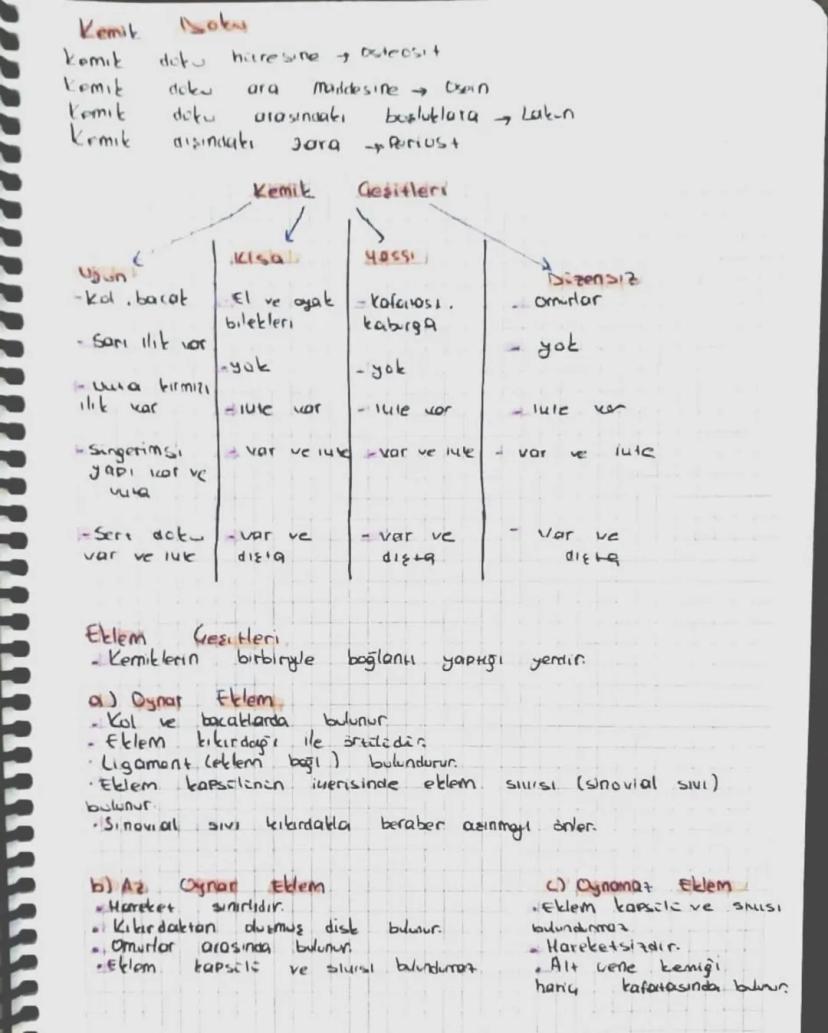 Kemik Doku
Kemik doku hücresine → Osteosit
Kemik doku ara maddesine → Osein
Kemik doku arasındaki boşluklara → Lakün
Kemik dışındaki zara → Periost
Kemik Çeşitleri
Uzun
- Kol, bacak
- Sarı ilik var
- kırmızı
ilik var
- Süngerimsi
yapı var ve
- Sert doku
var ve
Kısa
- El ve ayak
bilekleri
- yok
- var
- var ve
- var ve
dışta
Yassı
- Kafatası,
kaburga
- yok
- var
- var ve
- var ve
dışta
Düzensiz
- omurlar
- yok
- var
- var ve
- var ve
dışta
Eklem Çeşitleri
- Kemiklerin birbiriyle bağlantı yaptığı yerdir.
a) Oynar Eklem
- Kol ve bacaklarda bulunur
- Eklem kıkırdağı ile örtülüdür.
· Ligament (eklem bağı) bulundurur.
· Eklem kapsülünün içerisinde eklem sıvısı (sinovial sıvı)
bulunur.
· Sinovial sıvı kıkırdakla beraber aşınmayı önler.
b) Az Oynar Eklem
· Hareket sınırlıdır.
· Kıkırdaktan oluşmuş disk bulunur.
· Omurlar arasında bulunur.
· Eklem kapsülü ve sıvısı bulundurmaz
c) Oynamaz Eklem
· Eklem kapsülü ve sıvısı
bulundurmaz
· Hareketsizdir.
· Alt çene kemiği
hariç kafatasında bulunur.